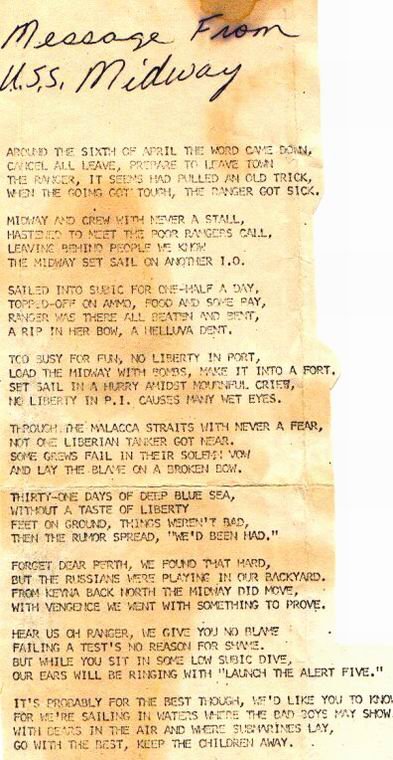 Message From
U.S.S. Midway
AROUND THE SIXTH OF APRIL THE WORD CAME DOWN,
CANCEL ALL LEAVE, PREPARE TO LEAVE TOWN
THE RANGER, IT SEEMS HAD PULLED AN OLD TRICK,
WHEN THE GOING GOT TOUGH, THE RANGER GOT SICK.
MIDWAY AND CREW WITH NEVER A STALL,
HASTENED TO MEET THE POOR RANGERS CALL,
LEAVING BEHIND PEOPLE WE KNOW
THE MIDWAY SET SAIL ON ANOTHER I.O.
SAILED INTO SUBIC FOR ONE-HALF A DAY,
TOPPED-OFF ON AMMO, FOOD AND SOME PAY,
RANGER WAS THERE ALL BEATEN AND BENT,
A RIP IN HER BOW, A HELLUVA DENT.
TOO BUSY FOR FUN, NO LIBERTY IN PORT,
LOAD THE MIDWAY WITH BOMBS, MAKE IT INTO A FORT.
SET SAIL IN A HURRY AMIDST MOURNFUL CRIES,
NO LIBERTY IN P.I. CAUSES MANY WET EYES.
THROUGH THE MALACCA STRAITS WITH NEVER A FEAR,
NOT ONE LIBERIAN TANKER GOT NEAR.
SOME CREWS FAIL IN THEIR SOLEMN VOW
AND LAY THE BLAME ON A BROKEN BOW.
THIRTY-ONE DAYS OF DEEP BLUE SEA,
WITHOUT A TASTE OF LIBERTY
FEET ON GROUND, THINGS WEREN'T BAD,
THEN THE RUMOR SPREAD, "WE'D BEEN HAD."
FORGET DEAR PERTH, WE FOUND THAT HARD,
BUT THE RUSSIANS WERE PLAYING IN OUR BACKYARD.
FROM KEYNA BACK NORTH THE MIDWAY DID MOVE,
WITH VENGENCE WE WENT WITH SOMETHING TO PROVE.
HEAR US OH RANGER, WE GIVE YOU NO BLAME
FAILING A TEST'S NO REASON FOR SHAME.
BUT WHILE YOU SIT IN SOME LOW SUBIC DIVE,
OUR EARS WILL BE RINGING WITH "LAUNCH THE ALERT FIVE."
IT'S PROBABLY FOR THE BEST THOUGH, WE'D LIKE YOU TO KNOW
FOR WE'RE SAILING IN WATERS WHERE THE BAD BOYS MAY SHOW.
WITH BEARS IN THE AIR AND WHERE SUBMARINES LAY,
GO WITH THE BEST, KEEP THE CHILDREN AWAY.